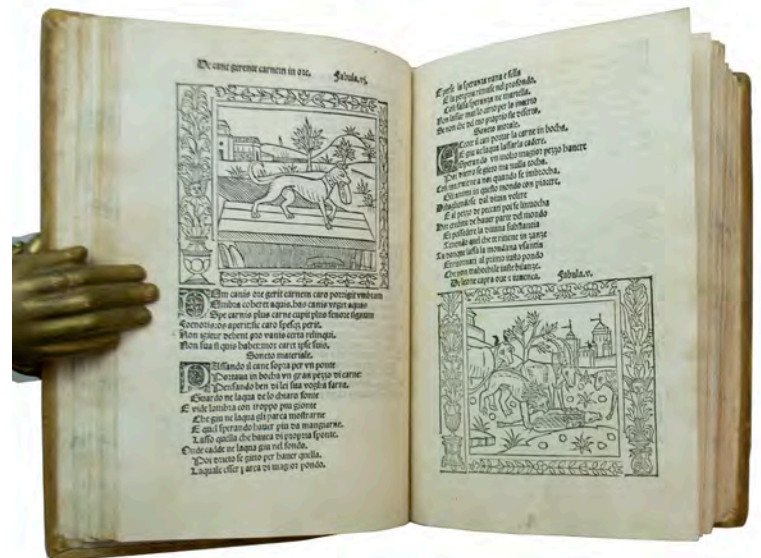 De cane gerente carnem in ore. Fabula. vj.
Am canis ore gerit carnem caro porrigit vmbram
Umbra coheret aquis. has canis vrget aquas
Spe carnis plus carne cupit plus fenore signum
Foenoris: os aperit: sic caro spesq; perit.
Non igitur debent pro vanis certa relinqui.
Non sua si quis habet: mox caret ipse suis.
Soneto materiale.
PAssando il cane sopra per vn ponte
Portaua in bocha vn gran pezzo di carne:
Pensando ben di lei sua voglia farne.
Guardo ne laqua de lo chiaro fonte
E vide lombra con troppo piu gionte
Che giu ne laqua gli parea mostrarne
E quel sperando hauer piu da mangiarne.
Lasso quella che hauea di propria sponte.
Onde cadde ne laqua giu nel fondo.
Poi drieto se gitto per hauer quella.
Laquale esser parea di magior pondo.
E perse la speranza vana e fella
E la propria rimase nel profondo.
Cosi falsa speranza ne martella.
Non lassar mai lo certo per lo incerto
Se non che del mo proprio sie diserto.
Soneto morale.
il can portar la carne in bocha.
E giu ne laqua lassarla cadere.
Sperando vn molto magior pezzo hauere
Poi drieto se gitto ma nulla tocha.
Cosi a noi quando se imbrocha.
Gli animi in questo mondo con piacere.
dal diuin volere
E al pezzo de peccati poi se
credeno de hauer parte del mondo
E possedere la diuina substantia
Tenendo quel che te ritiene in zanze
La dunque lassa la mondana vsantia
al primo stato pondo
Che non trabochile iuste bilanze.
De leone capra oue e iuuenca. Fabula. v.